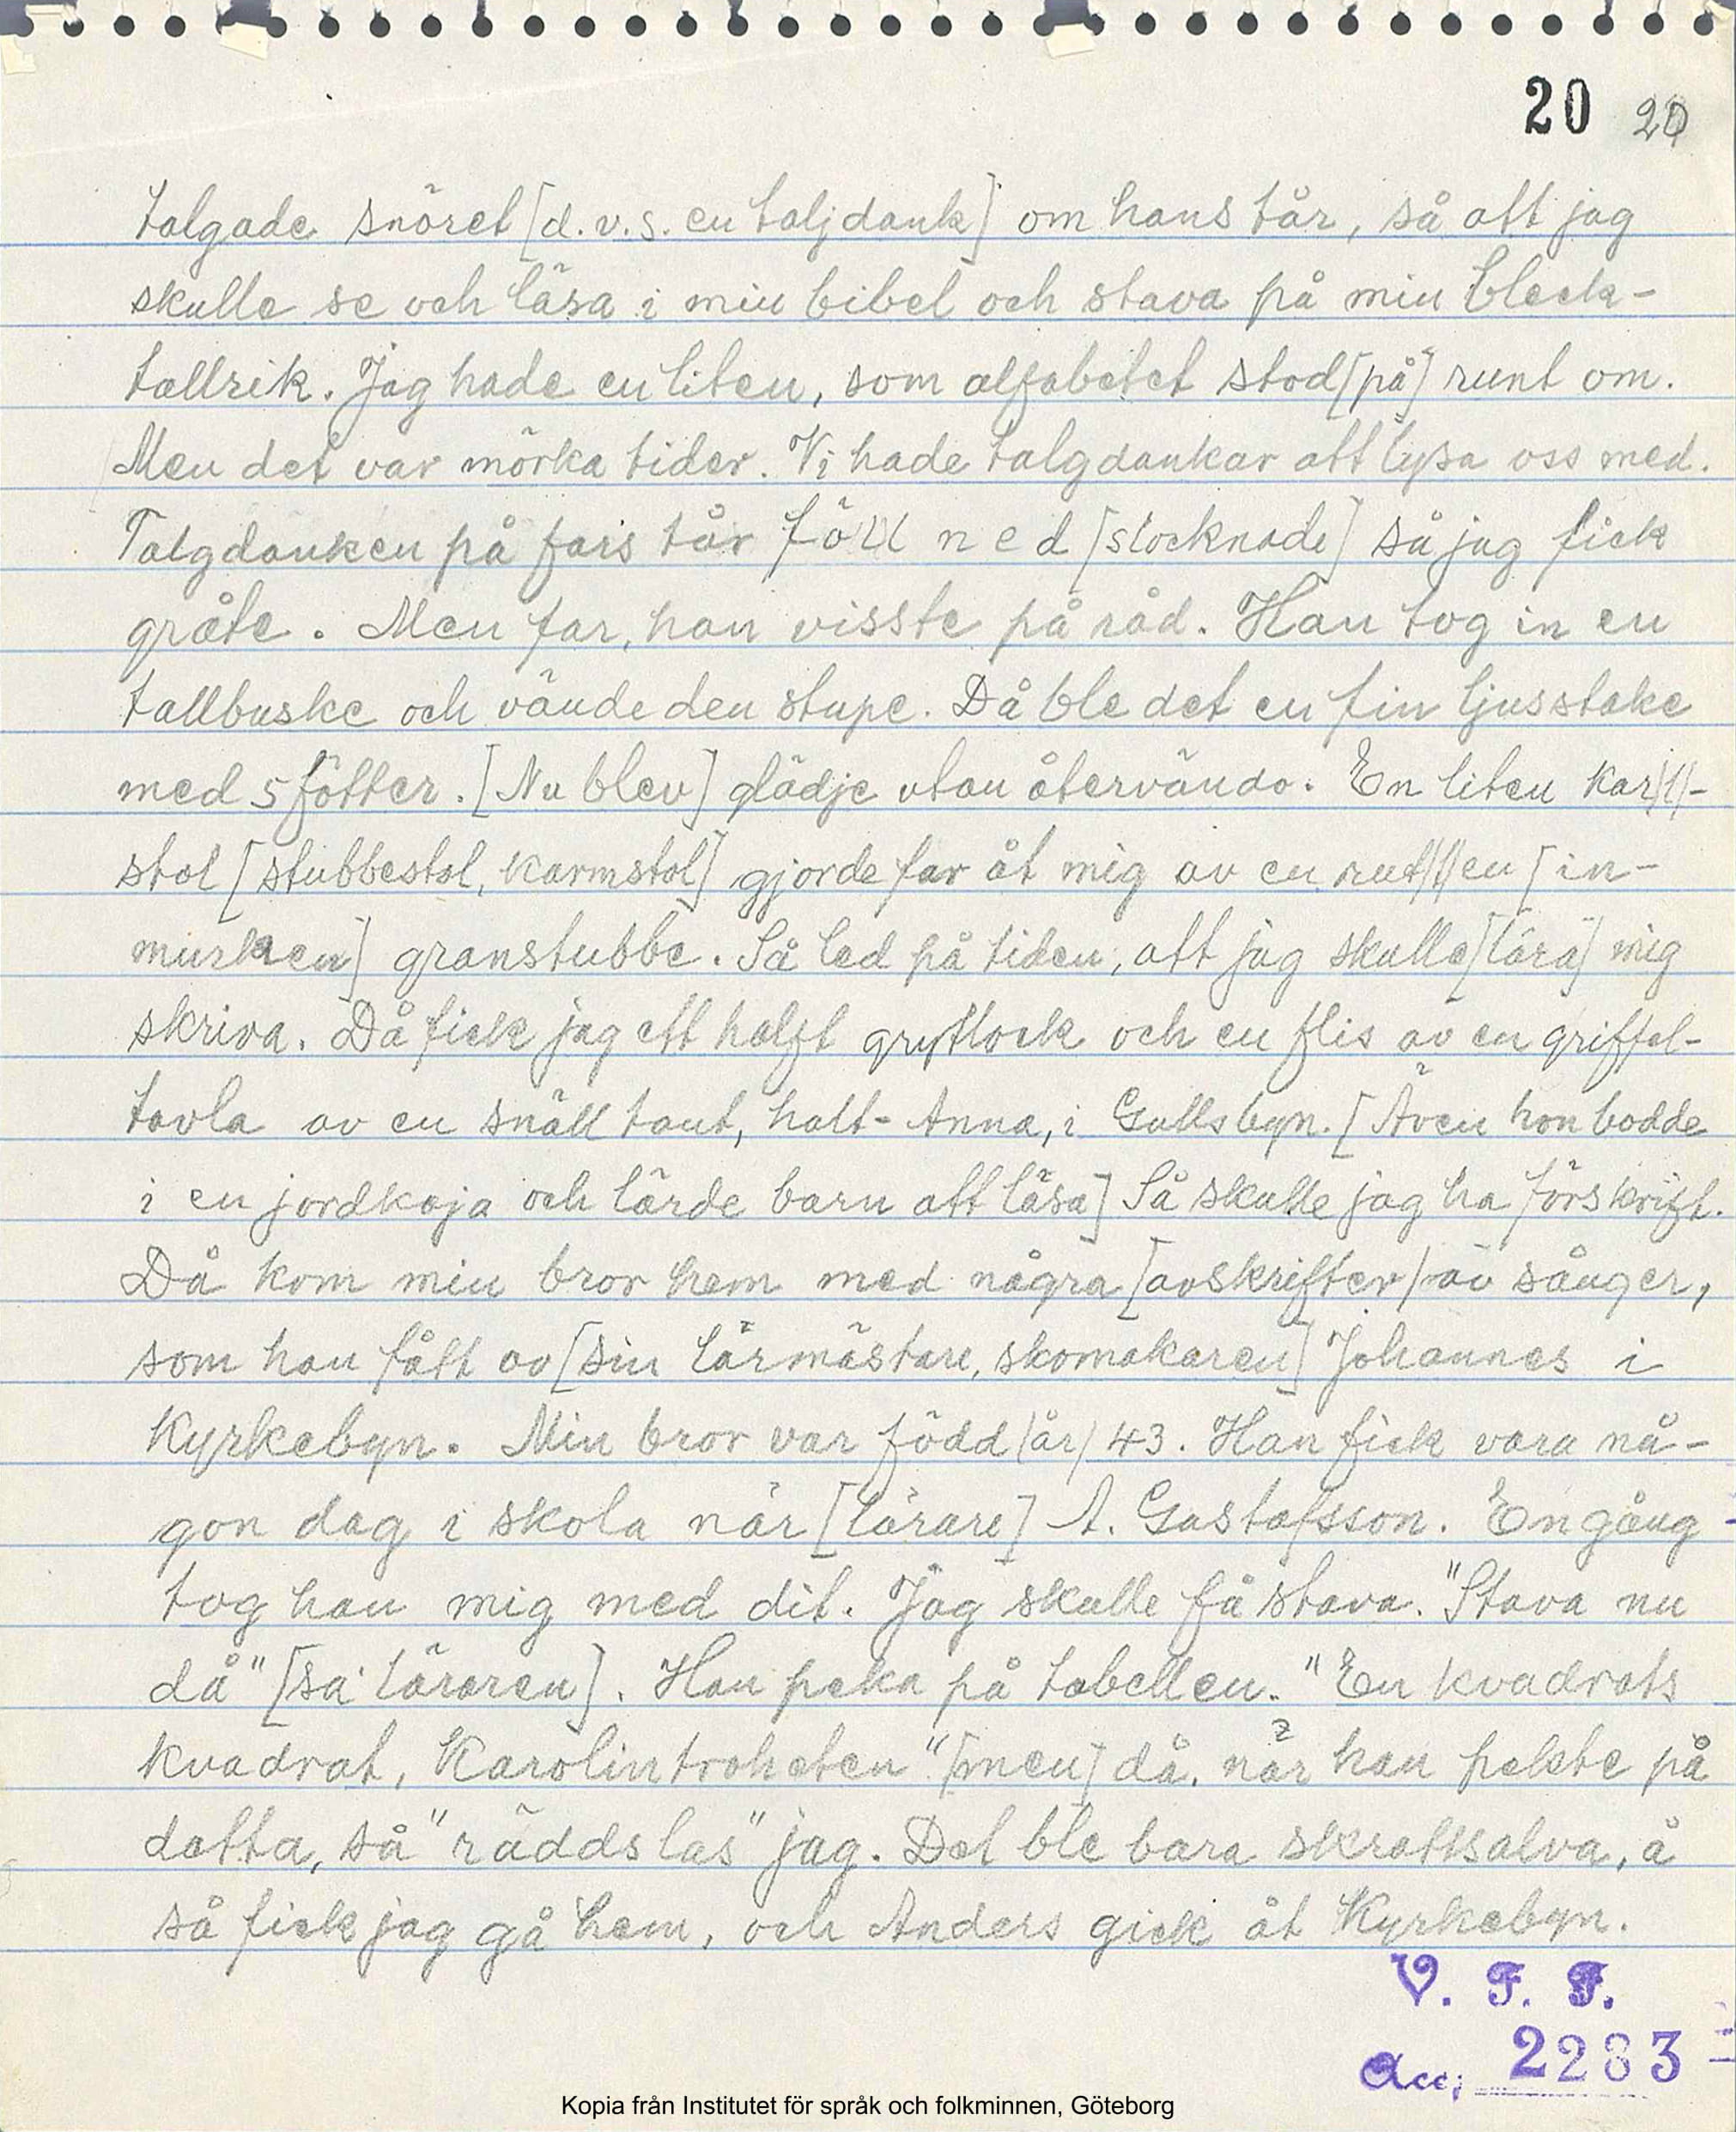 20 20
talgade snöret [d.v.s. en taljdank] om hans tår, så att jag
skulle se och läsa i min bibel och stava på min bleck-
tallrik. Jag hade en liten, som alfabetet stod [på] runt om.
Men det var mörka tider. Vi hade talgdankar att lysa oss med.
Talgdanken på fars tår föll ned [slocknade] så jag fick
gråte. Men far, han visste på råd. Han tog in en
tallbuske och vände den stupe. Då ble det en fin ljusstake
med 5 fötter. [Nu blev] glädje utan återvändo. En liten kar/l/-
stol [stubbestol, karmstol] gjorde far åt mig av en rut/t/en [in-
murken] granstubbe. Så led på tiden, att jag skulle [lära] mig
skriva. Då fick jag ett halft gryttlock och en flis av en griffel-
tavla av en snäll tant, halt-Anna, i Gullsbyn. [Även hon bodde
i en jordkoja och lärde barn att läsa] Så skulle jag ha förskrift.
Då kom min bror hem med några [avskrifter] av sånger,
som han fått av [sin läromästare, skomakaren] Johannes i
Kyrkebyn. Min bror var född [år] 43. Han fick vara nå-
gon dag i skola när [lärare] A. Gustafsson. En gång
tog han mig med dit. Jag skulle få stava. "Stava nu
då" [sa' läraren]. Han peka på tabellen. "En kvadrats
kvadrat, Karolintroheten" [men] då, när han pekte på
datta, så "räddslas" jag. Det ble bara skrattsalva, å
så fick jag gå hem, och Anders gick åt Kyrkebyn.
V. F. F.
Acc. 2283
Kopia från Institutet för språk och folkminnen, Göteborg